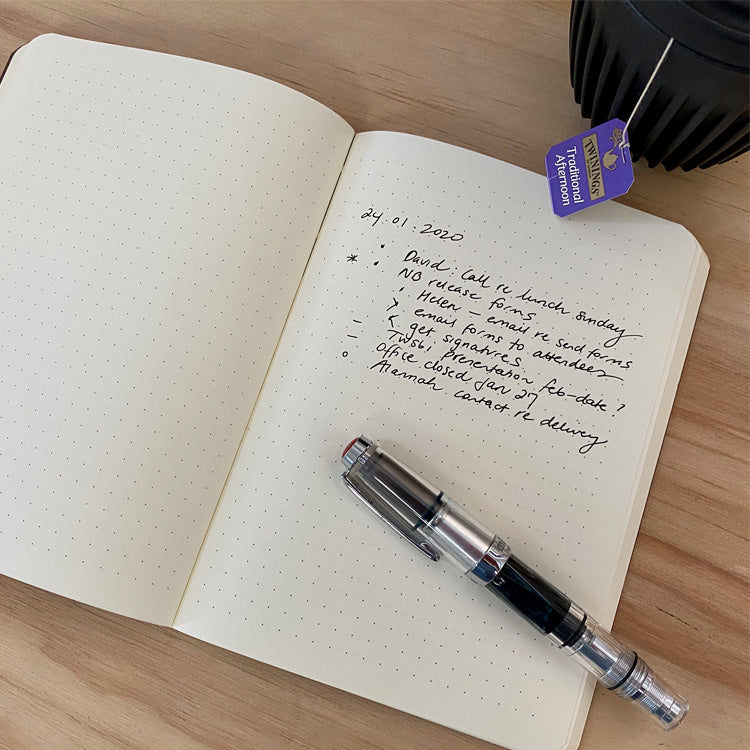 24.01.2020
• David: Call re lunch Sunday
* • NB release forms
• Helen – email re send forms
> email forms to attendees
< get signatures
– Twsbi presentation feb-date?
– Office closed Jan 27
o Alannah contact re delivery
TWININGS
Traditional
Afternoon